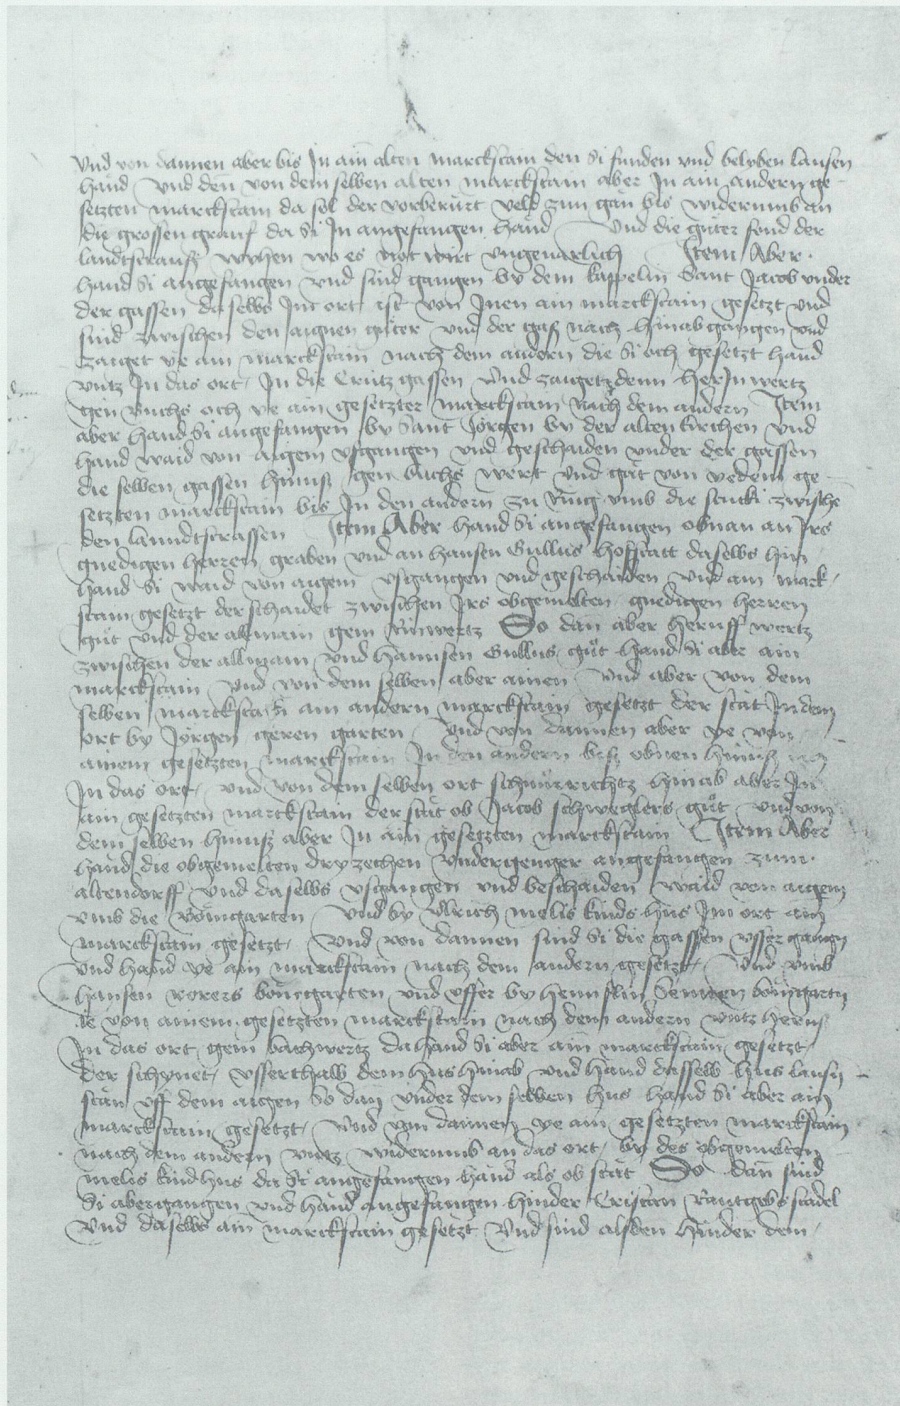 Vnd von dannen aber bis In ain alten marckstain den si funden vnd belyben lausen
hand Vnd den von dem selben alten marckstain aber In ain andern ge
setzten marckstain da sol der vorberürt veld zun gan bis widerumb an
die grossen grauf da si In angefangen hand Vnd die güter sond der
landtstrauß wychen wo es not wirt vngeuarlich Item Aber
hand si angefangen vnd sind gangen by dem kappelin sant Jacob vnder
der gassen daselbs Im ort ist von Inen ain marckstain gesetzt vnd
sind zwischen den aignen güter vnd der gaß nach hinab gangen vnd
zaiget ye ain marckstain nach dem andern die si och gesetzt hand
vntz In das ort In die Crütz gassen Vnd zaigetz denn her In wertz
gen Buchs och ye ain gesetzter marckstain nach dem andern Item
aber hand si angefangen by Sant Jörgen by der alten kirchen vnd
hand waid von aigem vsgangen vnd geschaiden vnder der gassen
die selben gassen hinuß gen buchs wert vnd gät von yedem ge
setzten marckstain bis In den andern zu ring vmb die stucki zwische
den lanndtstrassen Item Aber hand si angefangen obnan an Irs
gnedigen herren graben vnd an hansen Gullus hofstatt daselbs hin
hand si waid von aigem vsgangen vnd geschaiden vnd ain mark
stain gesetzt der schaidet zwischen Irs obgemelten gnedigen herren
güt vnd der almain gem Rinwertz So dan aber heruff wertz
zwischen der allmain vnd hannsen Gullus güt hand si aber ain
marckstain vnd von dem selben aber ainen Vnd aber von dem
selben marckstain ain andern marckstain gesetzt der stat In dem
ort by Jörgen geren garten Vnd von dannen aber ye von
ainem gesetzten marckstain In den andern biß obnen hinuß
In das ort vnd von dem selben ort schnürrichtz hinab aber In
ain gesetzten marckstain der stät ob Jacob schweglers güt vnd von
dem selben hinuß aber In ain gesetzten marckstain Item Aber
hand die obgemelten dryzechen vndergenger angefangen zum
altendorff vnd daselbs vsgangen vnd beschaiden waid von aigem
vmb die bömgarten Vnd by Vlrich melis kinds hus Im ort ain
marckstain gesetzt Vnd von dannen sind si die gassen vsser gangen
vnd hand ye ain marckstain nach dem andern gesetzt Vnd vmb
hansen rorers bömgarten vnd vsser by henni slin Sennen bömgarten
ie von ainem gesetzten marckstain nach dem andern vntz heruß
In das ort gem bachwertz da hand si aber ain marckstain gesetzt
der schynet vsserthalb dem hus hinab vnd hand dasselb hus lausn
stan vff dem aigen So dan vnder dem selben hus hand si aber ain
marckstain gesetzt Vnd von dannen ye ain gesetzten marckstain
nach dem andern vntz widerumb an das ort by des obgemelten
melis kind hus da si angefangen hand als ob stät So dan sind
Si aber gangen vnd hand angefangen hinder Cristan Rantgebs stadel
Vnd daselbs ain marckstain gesetzt Vnd sind alsden hinder dem